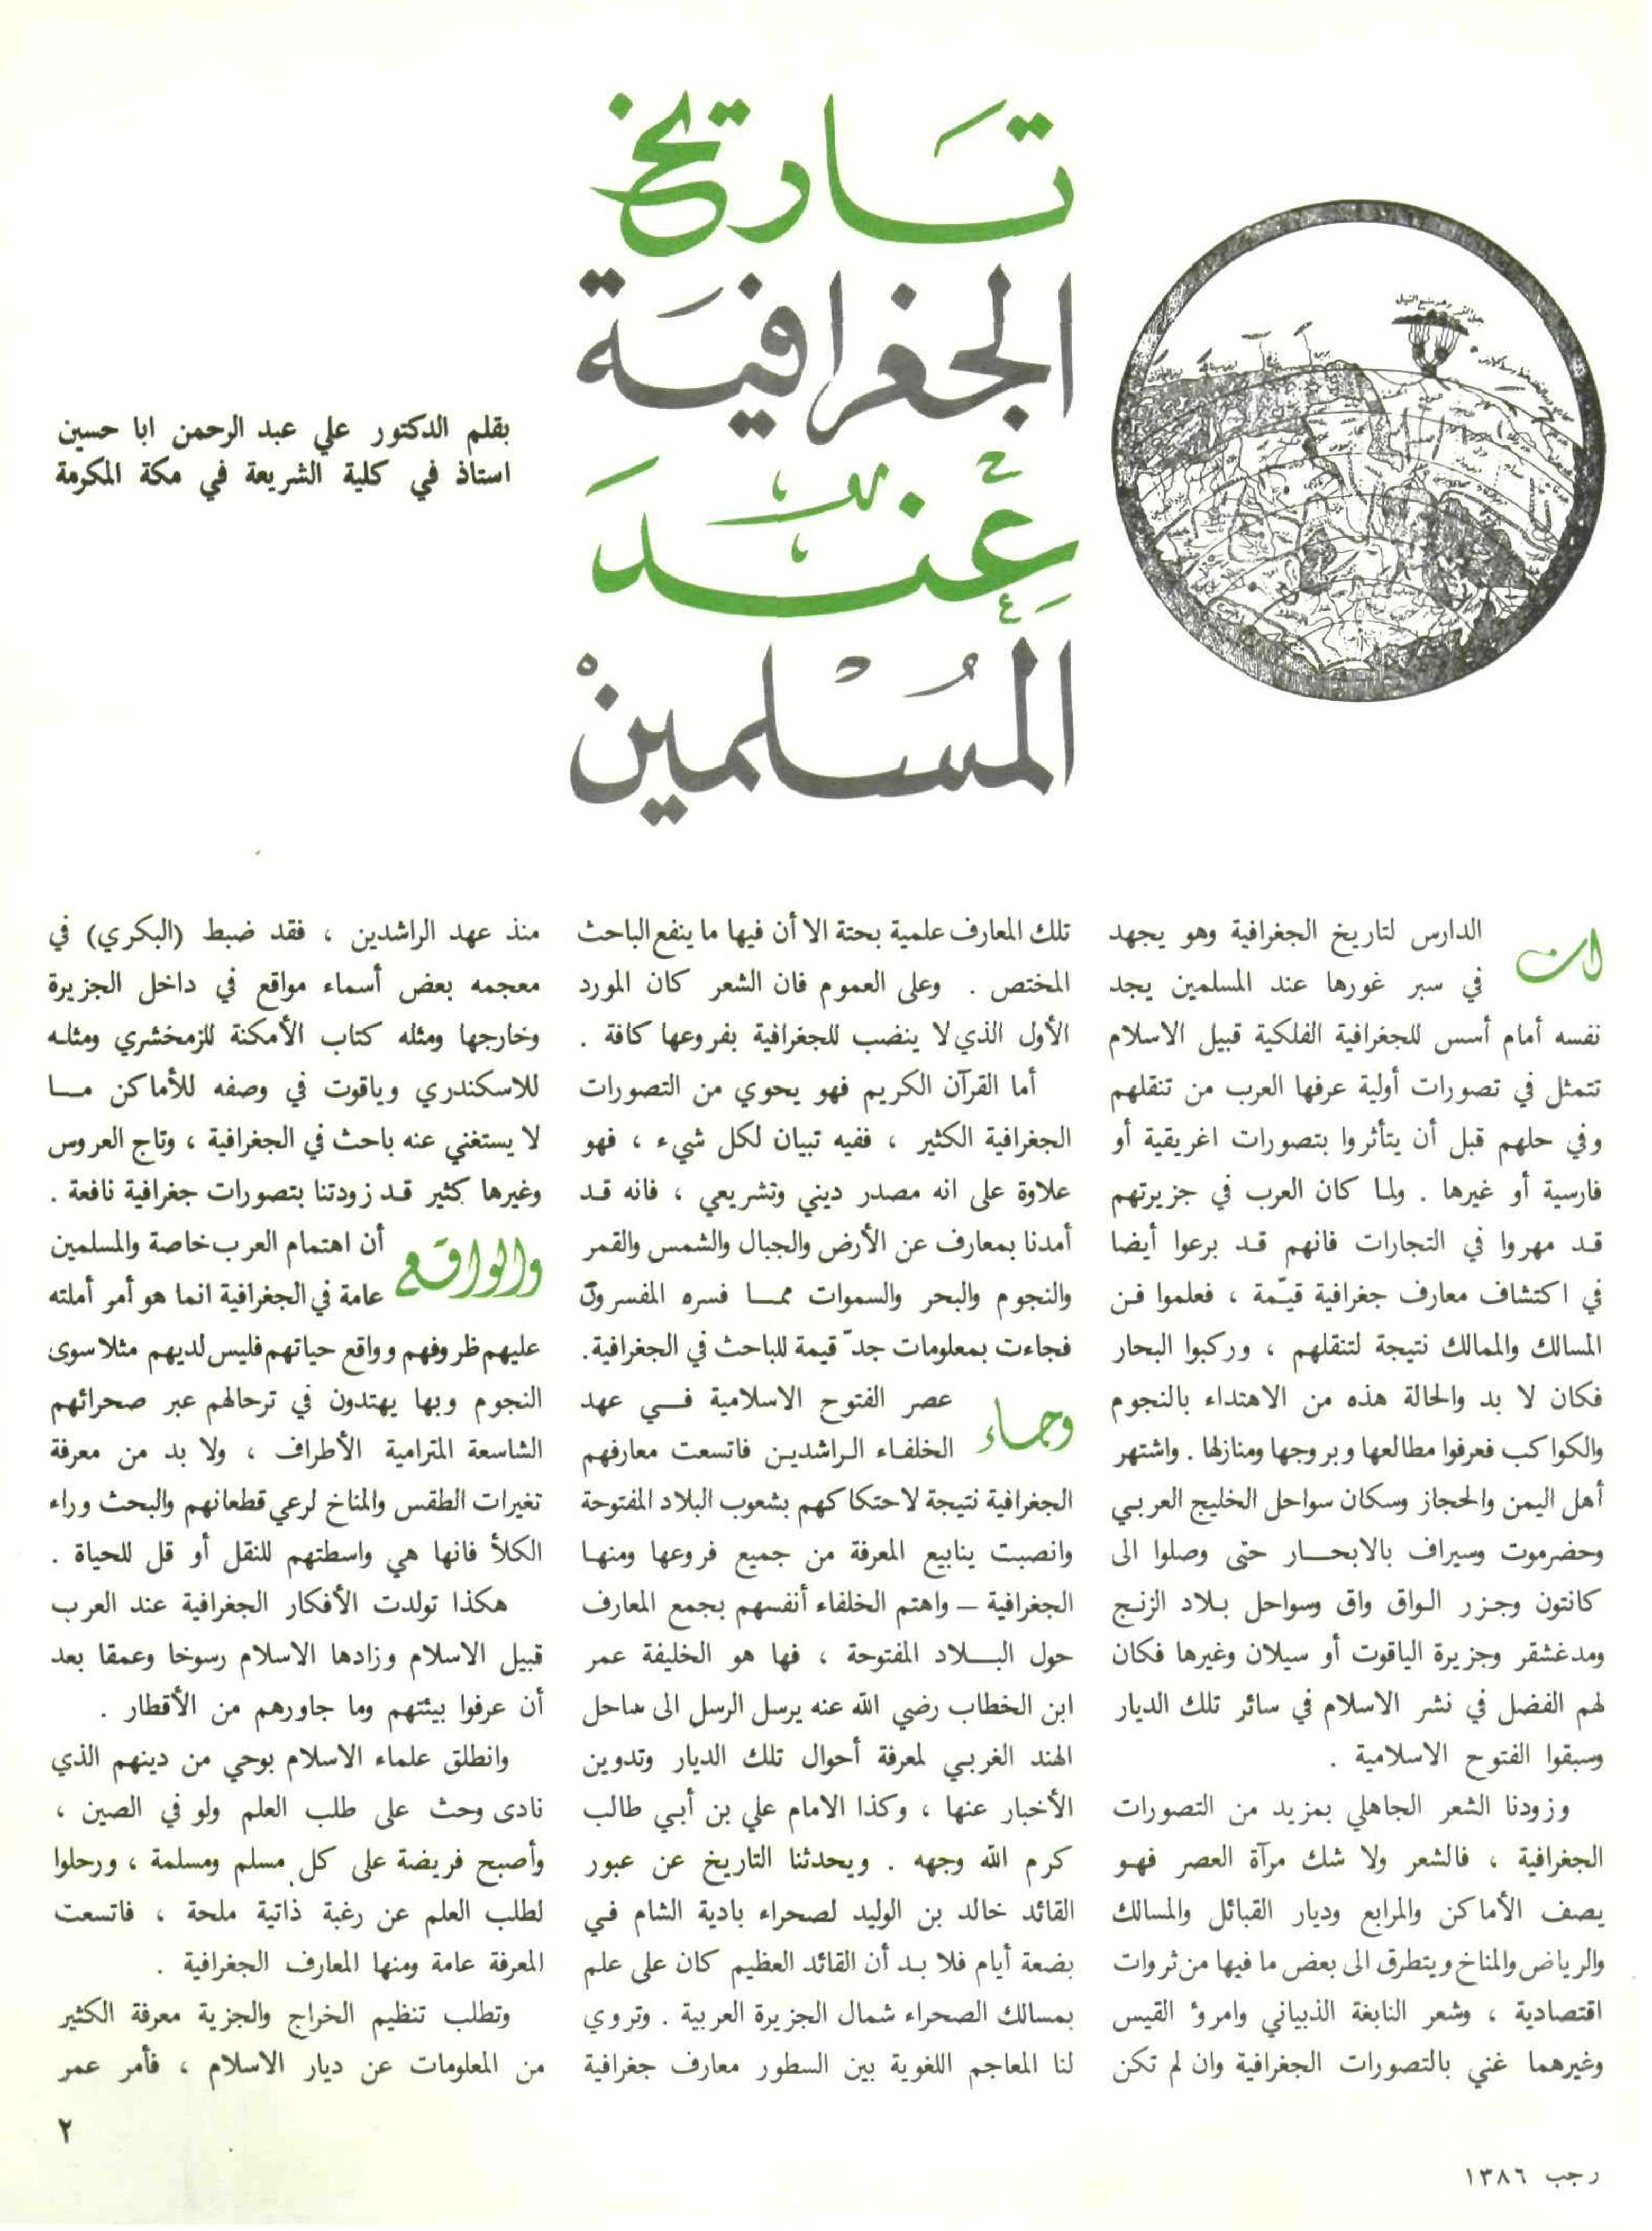 تاريخ
الجغرافية
عند
المسلمين
بقلم الدكتور علي عبد الرحمن ابا حسين
استاذ في كلية الشريعة في مكة المكرمة
ان الدارس لتاريخ الجغرافية وهو يجهد
في سبر غورها عند المسلمين يجد
نفسه أمام أسس للجغرافية الفلكية قبيل الاسلام
تتمثل في تصورات أولية عرفها العرب من تنقلهم
وفي حلهم قبل أن يتأثروا بتصورات اغريقية أو
فارسية أو غيرها . ولما كان العرب في جزيرتهم
قد مهروا في التجارات فانهم قد برعوا أيضا
في اكتشاف معارف جغرافية قيّمة ، فعلموا فن
المسالك والممالك نتيجة لتنقلهم ، وركبوا البحار
فكان لا بد والحالة هذه من الاهتداء بالنجوم
والكواكب فعرفوا مطالعها وبروجها ومنازلها . واشتهر
أهل اليمن والحجاز وسكان سواحل الخليج العربي
وحضرموت وسيراف بالابحار حتى وصلوا الى
كانتون وجزر الواق واق وسواحل بلاد الزنج
ومدغشقر وجزيرة الياقوت أو سيلان وغيرها فكان
لهم الفضل في نشر الاسلام في سائر تلك الديار
وسبقوا الفتوح الاسلامية .
وزودنا الشعر الجاهلي بمزيد من التصورات
الجغرافية ، فالشعر ولا شك مرآة العصر فهو
يصف الأماكن والمرابع وديار القبائل والمسالك
والرياض والمناخ ويتطرق الى بعض ما فيها من ثروات
اقتصادية ، وشعر النابغة الذبياني وامرؤ القيس
وغيرهما غني بالتصورات الجغرافية وان لم تكن
تلك المعارف علمية بحتة الا أن فيها ما ينفع الباحث
المختص . وعلى العموم فان الشعر كان المورد
الأول الذي لا ينضب للجغرافية بفروعها كافة .
أما القرآن الكريم فهو يحوي من التصورات
الجغرافية الكثير ، ففيه تبيان لكل شيء ، فهو
علاوة على انه مصدر ديني وتشريعي ، فانه قد
أمدنا بمعارف عن الأرض والجبال والشمس والقمر
والنجوم والبحر والسموات مما فسره المفسرون
فجاءت بمعلومات جدّ قيمة للباحث في الجغرافية.
وجاء عصر الفتوح الاسلامية في عهد
الخلفاء الراشدين فاتسعت معارفهم
الجغرافية نتيجة لاحتكاكهم بشعوب البلاد المفتوحة
وانصبت ينابيع المعرفة من جميع فروعها ومنها
الجغرافية – واهتم الخلفاء أنفسهم بجمع المعارف
حول البلاد المفتوحة ، فها هو الخليفة عمر
ابن الخطاب رضي الله عنه يرسل الرسل الى ساحل
الهند الغربي لمعرفة أحوال تلك الديار وتدوين
الأخبار عنها ، وكذا الامام علي بن أبي طالب
كرم الله وجهه . ويحدثنا التاريخ عن عبور
القائد خالد بن الوليد لصحراء بادية الشام في
بضعة أيام فلا بد أن القائد العظيم كان على علم
بمسالك الصحراء شمال الجزيرة العربية . وتروي
لنا المعاجم اللغوية بين السطور معارف جغرافية
منذ عهد الراشدين ، فقد ضبط (البكري) في
معجمه بعض أسماء مواقع في داخل الجزيرة
وخارجها ومثله كتاب الأمكنة للزمخشري ومثله
للاسكندري وياقوت في وصفه للأماكن ما
لا يستغني عنه باحث في الجغرافية ، وتاج العروس
وغيرها كثير قد زودتنا بتصورات جغرافية نافعة .
والواقع أن اهتمام العرب خاصة والمسلمين
عامة في الجغرافية انما هو أمر أملته
عليهم ظروفهم وواقع حياتهم فليس لديهم مثلا سوى
النجوم وبها يهتدون في ترحالهم عبر صحرائهم
الشاسعة المترامية الأطراف ، ولا بد من معرفة
تغيرات الطقس والمناخ لرعي قطعانهم والبحث وراء
الكلأ فانها هي واسطتهم للنقل أو قل للحياة .
هكذا تولدت الأفكار الجغرافية عند العرب
قبيل الاسلام وزادها الاسلام رسوخا وعمقا بعد
أن عرفوا بيئتهم وما جاورهم من الأقطار .
وانطلق علماء الاسلام بوحي من دينهم الذي
نادى وحث على طلب العلم ولو في الصين ،
وأصبح فريضة على كل مسلم ومسلمة ، ورحلوا
لطلب العلم عن رغبة ذاتية ملحة ، فاتسعت
المعرفة عامة ومنها المعارف الجغرافية .
وتطلب تنظيم الخراج والجزية معرفة الكثير
من المعلومات عن ديار الاسلام ، فأمر عمر
٢
رجب ١٣٨٦